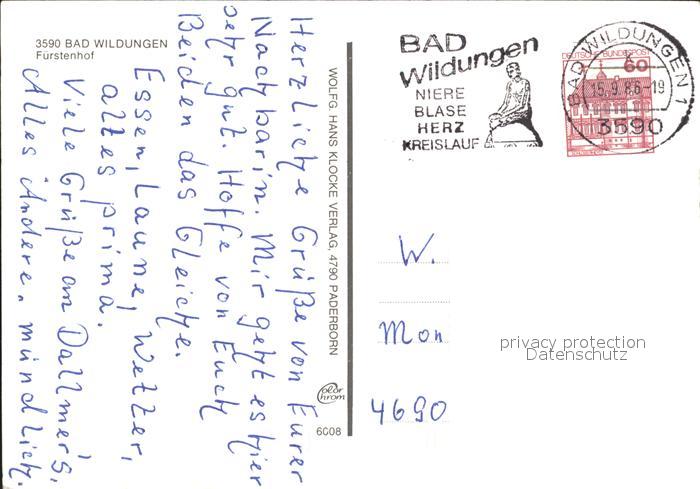 3590 BAD WILDUNGEN
Fürstenhof
Herzliche Grüße von Eurer
Nachbarin. Mir geht es hier
sehr gut. Hoffe von Euch
Beiden das Gleiche.
Essen, Laune, Wetter,
alles prima.
Viele Grüße an Dallmer's.
Alles Andere, mündlich.
WOLFG. HANS KLOCKE VERLAG, 4790 PADERBORN
color
chrom
6008
BAD
Wildungen
NIERE
BLASE
HERZ
KREISLAUF
DEUTSCHE BUNDESPOST
60
BAD WILDUNGEN 1
15.9.86-19
3590
W.
Mon
4690
privacy protection
Datenschutz